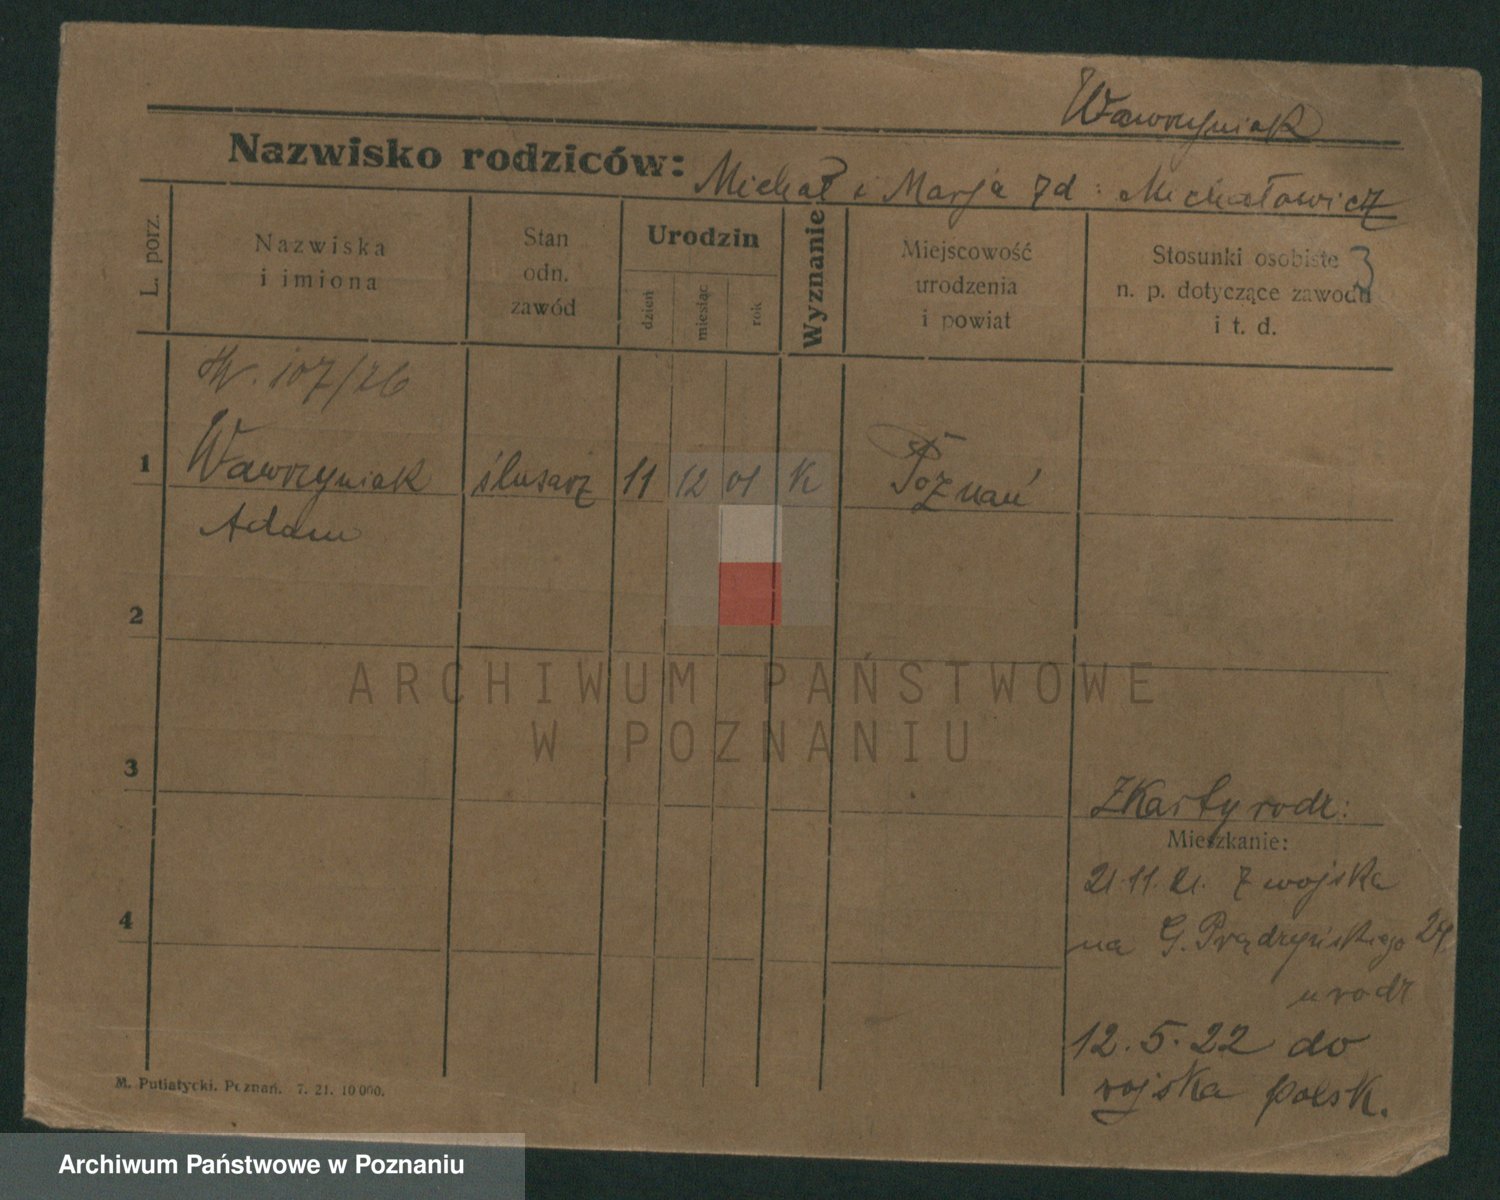 Wawrzyniak
Nazwisko rodziców: Michał i Marja zd: Michałowicz
L. porz.
Nazwiska
i imiona
Stan
odn.
zawód
Urodzin
dzień
miesiąc
rok
Wyznanie
Miejscowość
urodzenia
i powiat
Stosunki osobiste
n. p. dotyczące zawodu
i t. d.
3
107/26
1 Wawrzyniak ślusarz 11 12 01 K Poznań
Adam
2
ARCHIWUM PAŃSTWOWE
W POZNANIU
3
Z Karty rodz:
Mieszkanie:
21.11.21. z wojska
4
na G. Prądzyńskiego 29.
u rodz
12.5.22 do
wojska polsk.
M. Putiatycki. Poznań. 7. 21. 10 000.
Archiwum Państwowe w Poznaniu